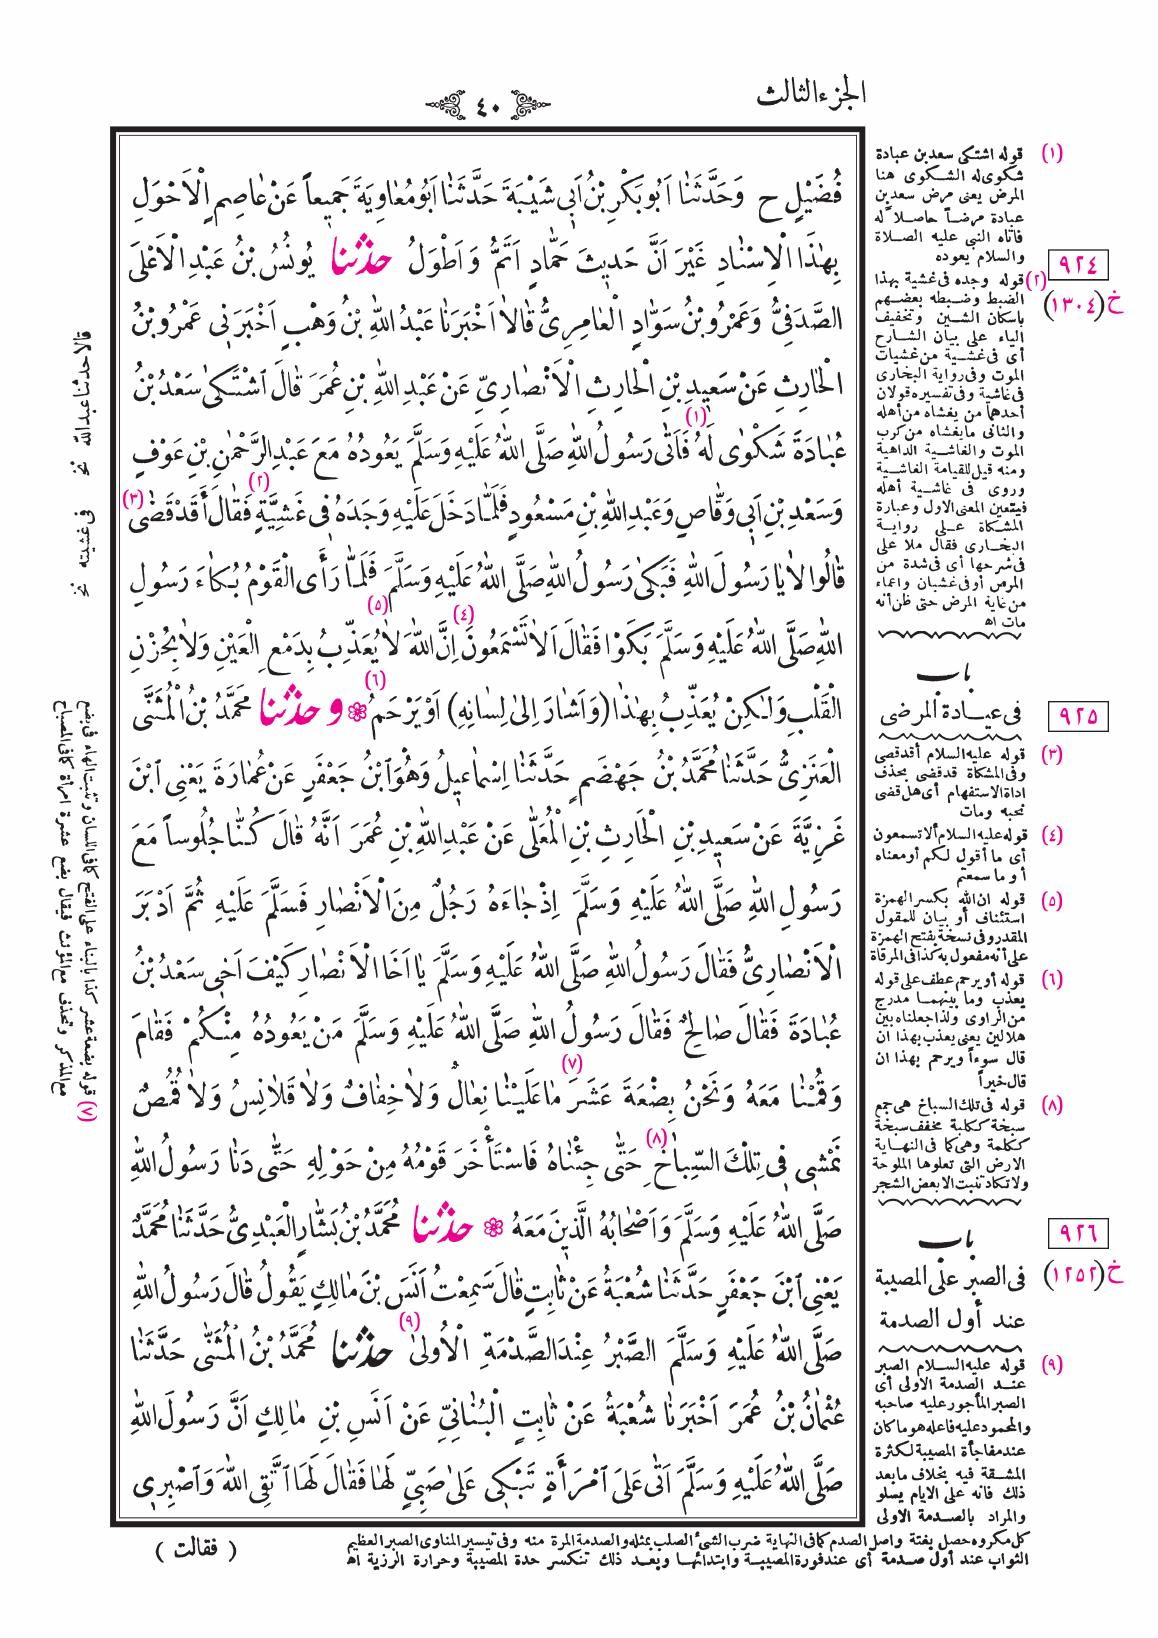 الجزء الثالث
٤٠
فُضَيْلٍ ح وَحَدَّثَنَا اَبُو بَكْرِ بْنُ اَبِي شَيْبَةَ حَدَّثَنَا اَبُو مُعَاوِيَةَ جَمِيعاً عَنْ عَاصِمٍ الْاَحْوَلِ
بِهٰذَا الْاِسْنَادِ غَيْرَ اَنَّ حَدِيثَ حَمَّادٍ اَتَمُّ وَاَطْوَلُ حدثنا يُونُسُ بْنُ عَبْدِ الْاَعْلَى
الصَّدَفِيُّ وَعَمْرُو بْنُ سَوَّادٍ الْعَامِرِيُّ قَالاَ اَخْبَرَنَا عَبْدُ اللّٰهِ بْنُ وَهْبٍ اَخْبَرَنِي عَمْرُو بْنُ
الْحَارِثِ عَنْ سَعِيدِ بْنِ الْحَارِثِ الْاَنْصَارِيِّ عَنْ عَبْدِ اللّٰهِ بْنِ عُمَرَ قَالَ اشْتَكىٰ سَعْدُ بْنُ
عُبَادَةَ شَكْوٰى لَهُ (١) فَاَتٰى رَسُولُ اللّٰهِ صَلَّى اللّٰهُ عَلَيْهِ وَسَلَّمَ يَعُودُهُ مَعَ عَبْدِ الرَّحْمٰنِ بْنِ عَوْفٍ
وَسَعْدِ بْنِ اَبِي وَقَّاصٍ وَعَبْدِ اللّٰهِ بْنِ مَسْعُودٍ فَلَمَّا دَخَلَ عَلَيْهِ وَجَدَهُ فِي غَشِيَّةٍ (٢) فَقَالَ أَقَدْ قَضٰى (٣)
قَالُوا لاٰ يَا رَسُولَ اللّٰهِ فَبَكىٰ رَسُولُ اللّٰهِ صَلَّى اللّٰهُ عَلَيْهِ وَسَلَّمَ فَلَمَّا رَأَى الْقَوْمُ بُكَاءَ رَسُولِ
اللّٰهِ صَلَّى اللّٰهُ عَلَيْهِ وَسَلَّمَ بَكَوْا فَقَالَ اَلاٰ تَسْمَعُونَ (٤) اِنَّ اللّٰهَ (٥) لاٰ يُعَذِّبُ بِدَمْعِ الْعَيْنِ وَلاٰ بِحُزْنِ
الْقَلْبِ وَلٰكِنْ يُعَذِّبُ بِهٰذَا (وَاَشَارَ اِلىٰ لِسَانِهِ) اَوْ يَرْحَمُ (٦) وحدثنا مُحَمَّدُ بْنُ الْمُثَنَّى
الْعَنَزِيُّ حَدَّثَنَا مُحَمَّدُ بْنُ جَهْضَمٍ حَدَّثَنَا اِسْمَاعِيلُ وَهُوَ ابْنُ جَعْفَرٍ عَنْ عُمَارَةَ يَعْنِي ابْنَ
غَزِيَّةَ عَنْ سَعِيدِ بْنِ الْحَارِثِ بْنِ الْمُعَلَّى عَنْ عَبْدِ اللّٰهِ بْنِ عُمَرَ اَنَّهُ قَالَ كُنَّا جُلُوساً مَعَ
رَسُولِ اللّٰهِ صَلَّى اللّٰهُ عَلَيْهِ وَسَلَّمَ اِذْ جَاءَهُ رَجُلٌ مِنَ الْاَنْصَارِ فَسَلَّمَ عَلَيْهِ ثُمَّ اَدْبَرَ
الْاَنْصَارِيُّ فَقَالَ رَسُولُ اللّٰهِ صَلَّى اللّٰهُ عَلَيْهِ وَسَلَّمَ يَا اَخَا الْاَنْصَارِ كَيْفَ اَخِي سَعْدُ بْنُ
عُبَادَةَ فَقَالَ صَالِحٌ فَقَالَ رَسُولُ اللّٰهِ صَلَّى اللّٰهُ عَلَيْهِ وَسَلَّمَ مَنْ يَعُودُهُ مِنْكُمْ فَقَامَ
وَقُمْنَا مَعَهُ وَنَحْنُ بِضْعَةَ عَشَرَ (٧) مَا عَلَيْنَا نِعَالٌ وَلاٰ خِفَافٌ وَلاٰ قَلاٰنِسُ وَلاٰ قُمُصٌ
نَمْشِي فِي تِلْكَ السِّبَاخِ (٨) حَتّٰى جِئْنَاهُ فَاسْتَأْخَرَ قَوْمُهُ مِنْ حَوْلِهِ حَتّٰى دَنَا رَسُولُ اللّٰهِ
صَلَّى اللّٰهُ عَلَيْهِ وَسَلَّمَ وَاَصْحَابُهُ الَّذِينَ مَعَهُ حدثنا مُحَمَّدُ بْنُ بَشَّارٍ الْعَبْدِيُّ حَدَّثَنَا مُحَمَّدٌ
يَعْنِي ابْنَ جَعْفَرٍ حَدَّثَنَا شُعْبَةُ عَنْ ثَابِتٍ قَالَ سَمِعْتُ اَنَسَ بْنَ مَالِكٍ يَقُولُ قَالَ رَسُولُ اللّٰهِ
صَلَّى اللّٰهُ عَلَيْهِ وَسَلَّمَ الصَّبْرُ عِنْدَ الصَّدْمَةِ الْاُولىٰ (٩) حدثنا مُحَمَّدُ بْنُ الْمُثَنّٰى حَدَّثَنَا
عُثْمَانُ بْنُ عُمَرَ اَخْبَرَنَا شُعْبَةُ عَنْ ثَابِتٍ الْبُنَانِيِّ عَنْ اَنَسِ بْنِ مَالِكٍ اَنَّ رَسُولَ اللّٰهِ
صَلَّى اللّٰهُ عَلَيْهِ وَسَلَّمَ اَتٰى عَلَى امْرَأَةٍ تَبْكِي عَلىٰ صَبِيٍّ لَهَا فَقَالَ لَهَا اتَّقِي اللّٰهَ وَاصْبِرِي
(١) قوله اشتكى سعد بن عبادة
شكوى له الشكوى هنا
المرض يعنى مرض سعد بن
عبادة مرضاً حاصلاً له
فاتاه النبى عليه الصلاة
والسلام يعوده
٩٢٤
خ (١٣٠٤)
(٢) قوله وجده فى غشية بهذا
الضبط وضبطه بعضهم
باسكان الشين وتخفيف
الياء على بيان الشارح
أى فى غشية من غشيات
الموت وفى رواية البخارى
فى غاشية وفى تفسيره قولان
أحدهما من يغشاه من أهله
والثانى ما يغشاه من كرب
الموت والغاشية الداهية
ومنه قيل للقيامة الغاشية
وروى فى غاشية أهله
فيتعين المعنى الاول وعبارة
المشكاة على رواية
البخارى فقال ملا على
فى شرحها أى فى شدة من
المرض أو فى غشيان واغماء
من غاية المرض حتى ظن أنه
مات اه
باب
فى عيادة المرضى
٩٢٥
(٣) قوله عليه السلام أقد قضى
وفى المشكاة قد قضى بحذف
اداة الاستفهام أى هل قضى
نحبه ومات
(٤) قوله عليه السلام ألا تسمعون
أى ما أقول لكم أو معناه
أو ما سمعتم
(٥) قوله ان الله بكسر الهمزة
استئناف أو بيان للمقول
المقدر وفى نسخة بفتح الهمزة
على أنه مفعول به كذا فى المرقاة
(٦) قوله أو يرحم عطف على قوله
يعذب وما بينهما مدرج
من الراوى ولذا جعلناه بين
هلالين يعنى يعذب بهذا ان
قال سوءاً ويرحم بهذا ان
قال خيراً
(٨) قوله فى تلك السباخ هى جمع
سبخة ككلبة مخفف سبخة
ككلمة وهى كما فى النهاية
الارض التى تعلوها الملوحة
ولا تكاد تنبت الا بعض الشجر
باب
فى الصبر على المصيبة
عند أول الصدمة
٩٢٦
خ (١٢٥٢)
(٩) قوله عليه السلام الصبر
عند الصدمة الاولى أى
الصبر المأجور عليه صاحبه
والمحمود عليه فاعله هو ما كان
عند مفاجأة المصيبة لكثرة
المشقة فيه بخلاف ما بعد
ذلك فانه على الايام يسلو
والمراد بالصدمة الاولى
كل مكروه حصل بغتة واصل الصدم كما فى النهاية ضرب الشئ الصلب بمثله والصدمة المرة منه وفى تيسير المناوى الصبر العظيم
الثواب عند أول صدمة أى عند فورة المصيبة وابتدائها وبعد ذلك تنكسر حدة المصيبة وحرارة الرزية اه
( فقالت )
قالا حدثنا عبدالله نخ
فى غشيته نخ
(٧) قوله بضعة عشر كذا بالبناء على الفتح كما فى اللسان وتثبت الهاء فى بضع
مع المذكر وتحذف مع المؤنث فيقال بضع عشرة امرأة كما فى المصباح